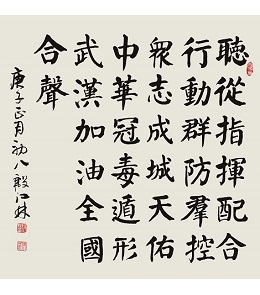 聽從指揮配合
行動群防羣控
衆志成城天佑
中華冠毒遁形
武漢加油全國
合聲
庚子正月初八江林